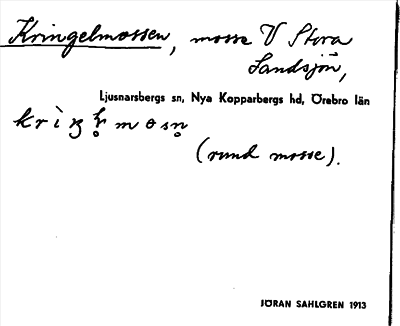 Kringelmossen, mosse V Stora
Sandsjön,
Ljusnarsbergs sn, Nya Kopparbergs hd, Örebro län
(rund mosse).
JÖRAN SAHLGREN 1913